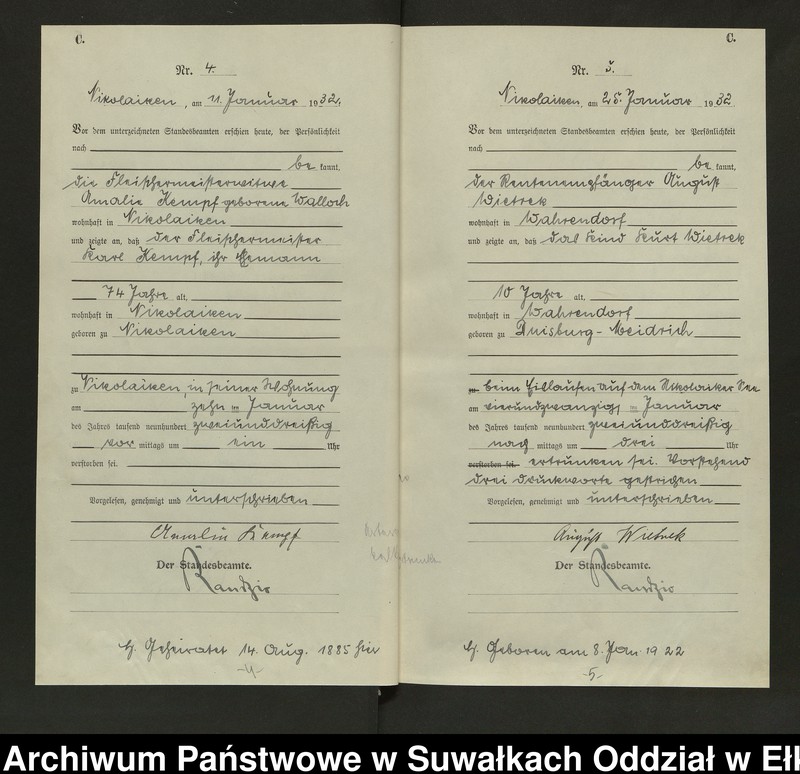 C.
Nr. 4.
Nikolaiken, am 11. Januar 1932.
Vor dem unterzeichneten Standesbeamten erschien heute, der Persönlichkeit
nach
be kannt,
die Fleischermeisterwitwe
Amalie Kempf geborene Walloch
wohnhaft in Nikolaiken
und zeigte an, daß der Fleischermeister
Karl Kempf, ihr Ehemann
74 Jahre alt,
wohnhaft in Nikolaiken
geboren zu Nikolaiken
zu Nikolaiken, in seiner Wohnung
am zehn ten Januar
des Jahres tausend neunhundert zweiunddreißig
vor mittags um ein Uhr
verstorben sei.
Vorgelesen, genehmigt und unterschrieben
Amalie Kempf
Der Standesbeamte.
Randzio
H. Geheiratet 14. Aug. 1885 hier
-4-
C.
Nr. 5.
Nikolaiken, am 25. Januar 1932
Vor dem unterzeichneten Standesbeamten erschien heute, der Persönlichkeit
nach
be kannt,
der Rentenempfänger August
Wietrek
wohnhaft in Wahrendorf
und zeigte an, daß das Kind Kurt Wietrek
10 Jahre alt,
wohnhaft in Wahrendorf
geboren zu Duisburg-Meidrich
zu beim Eislaufen auf dem Nikolaiker See
am vierundzwanzig ten Januar
des Jahres tausend neunhundert zweiunddreißig
nach mittags um drei Uhr
verstorben sei. ertrunken sei. Vorstehend
drei Druckworte gestrichen
Vorgelesen, genehmigt und unterschrieben
August Wietrek
Der Standesbeamte.
Randzio
H. Geboren am 8. Jan. 1922
-5-
Archiwum Państwowe w Suwałkach Oddział w Ełk